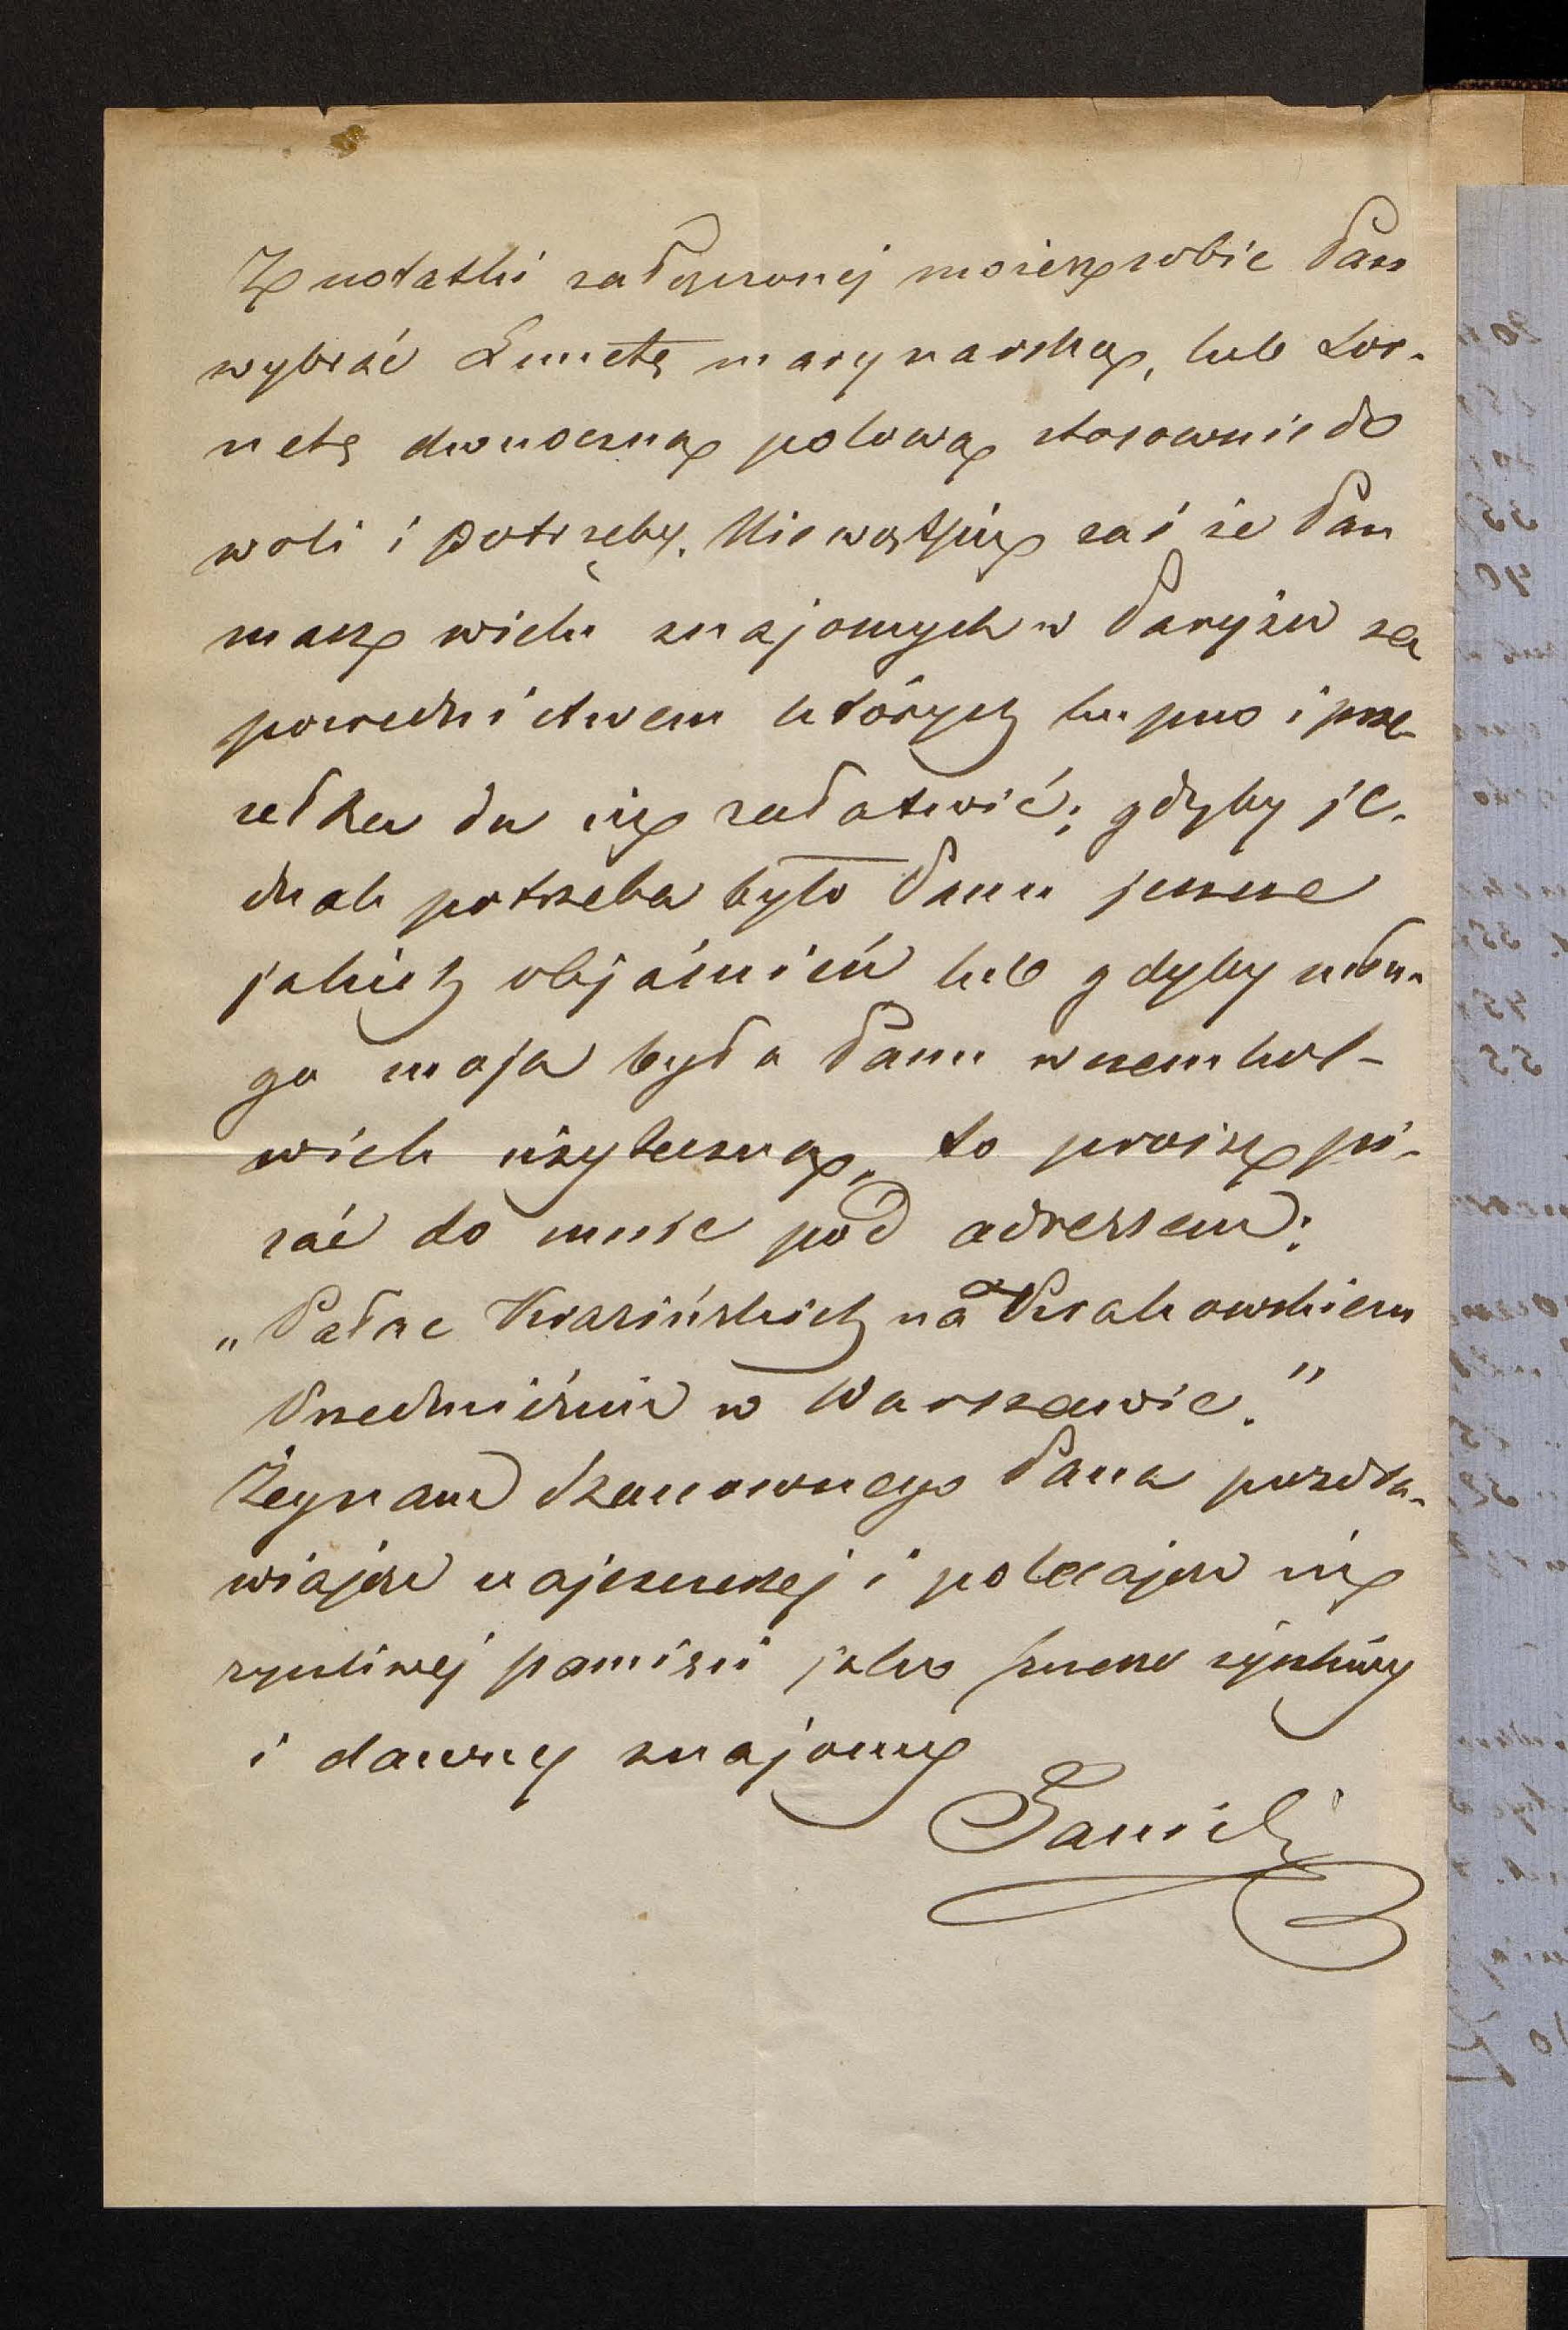 Z notatki załączonej możesz sobie Pan
wybrać Lunetę marynarską, lub Lor-
netę dwuoczną polową stosownie do
woli i potrzeby. Nie wątpię zaś że Pan
masz wielu znajomych w Paryżu za
pośrednictwem których kupno i prze-
sełka da się załatwić; gdyby je-
dnak potrzeba było Panu jeszcze
jakich objaśnień lub gdyby usłu-
ga moja była Panu w czemkol-
wiek użyteczną, to proszę pi-
sać do mnie pod adressem:
„Pałac Krasińskich na Krakowskiem
Przedmieściu w Warszawie."
Żegnam Szanownego Pana pozdra-
wiając najszczerzej i polecając się
życzliwej pamięci jako szczerze życzliwy
i dawny znajomy